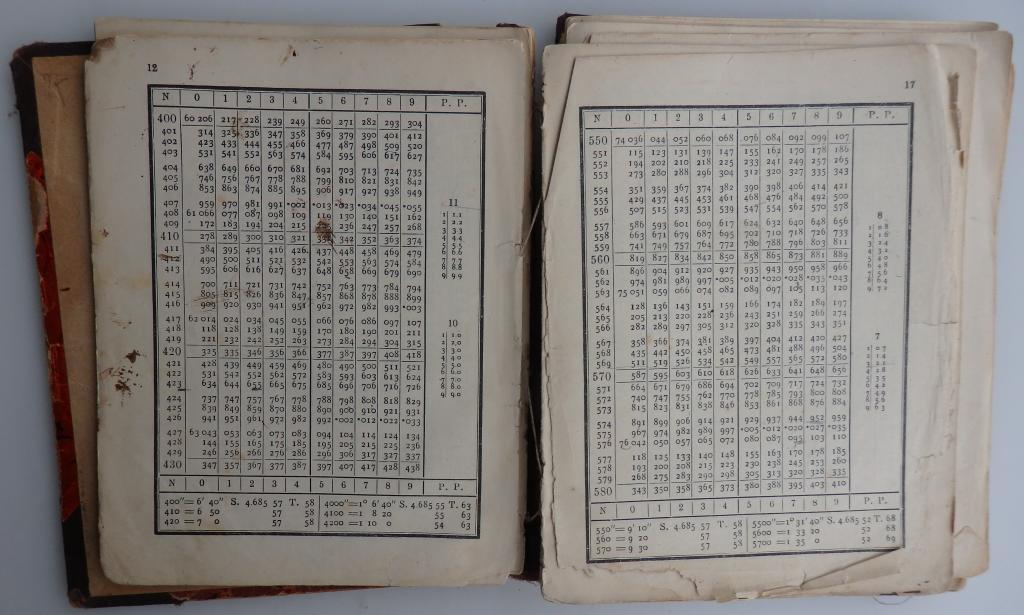 12
N 0 1 2 3 4 5 6 7 8 9 P. P.
400 60 206 217 228 239 249 260 271 282 293 304
401 314 325 336 347 358 369 379 390 401 412
402 423 433 444 455 466 477 487 498 509 520
403 531 541 552 563 574 584 595 606 617 627
404 638 649 660 670 681 692 703 713 724 735
405 746 756 767 778 788 799 810 821 831 842
406 853 863 874 885 895 906 917 927 938 949
407 959 970 981 991 *002 *013 *023 *034 *045 *055
408 61 066 077 087 098 109 119 130 140 151 162
409 172 183 194 204 215 236 247 257 268
410 278 289 300 310 321 331 342 352 363 374
411 384 395 405 416 426 437 448 458 469 479
412 490 500 511 521 532 542 553 563 574 584
413 595 606 616 627 637 648 658 669 679 690
414 700 711 721 731 742 752 763 773 784 794
415 805 815 826 836 847 857 868 878 888 899
416 909 920 930 941 951 962 972 982 993 *003
417 62 014 024 034 045 055 066 076 086 097 107
418 118 128 138 149 159 170 180 190 201 211
419 221 232 242 252 263 273 284 294 304 315
420 325 335 346 356 366 377 387 397 408 418
421 428 439 449 459 469 480 490 500 511 521
422 531 542 552 562 572 583 593 603 613 624
423 634 644 655 665 675 685 696 706 716 726
424 737 747 757 767 778 788 798 808 818 829
425 839 849 859 870 880 890 900 910 921 931
426 941 951 961 972 982 992 *002 *012 *022 *033
427 63 043 053 063 073 083 094 104 114 124 134
428 144 155 165 175 185 195 205 215 225 236
429 246 256 266 276 286 296 306 317 327 337
430 347 357 367 377 387 397 407 417 428 438
11
1 1.1
2 2.2
3 3.3
4 4.4
5 5.5
6 6.6
7 7.7
8 8.8
9 9.9
10
1 1.0
2 2.0
3 3.0
4 4.0
5 5.0
6 6.0
7 7.0
8 8.0
9 9.0
N 0 1 2 3 4 5 6 7 8 9 P. P.
400″= 6′ 40″ S. 4.685 57 T. 58 4000″= 1° 6′ 40″ S. 4.685 55 T. 63
410 = 6 50 57 58 4100 = 1 8 20 55 63
420 = 7 0 57 58 4200 = 1 10 0 54 63
17
N 0 1 2 3 4 5 6 7 8 9 P. P.
550 74 036 044 052 060 068 076 084 092 099 107
551 115 123 131 139 147 155 162 170 178 186
552 194 202 210 218 225 233 241 249 257 265
553 273 280 288 296 304 312 320 327 335 343
554 351 359 367 374 382 390 398 406 414 421
555 429 437 445 453 461 468 476 484 492 500
556 507 515 523 531 539 547 554 562 570 578
557 586 593 601 609 617 624 632 640 648 656
558 663 671 679 687 695 702 710 718 726 733
559 741 749 757 764 772 780 788 796 803 811
560 819 827 834 842 850 858 865 873 881 889
561 896 904 912 920 927 935 943 950 958 966
562 974 981 989 997 *005 *012 *020 *028 *035 *043
563 75 051 059 066 074 082 089 097 105 113 120
564 128 136 143 151 159 166 174 182 189 197
565 205 213 220 228 236 243 251 259 266 274
566 282 289 297 305 312 320 328 335 343 351
567 358 366 374 381 389 397 404 412 420 427
568 435 442 450 458 465 473 481 488 496 504
569 511 519 526 534 542 549 557 565 572 580
570 587 595 603 610 618 626 633 641 648 656
571 664 671 679 686 694 702 709 717 724 732
572 740 747 755 762 770 778 785 793 800 808
573 815 823 831 838 846 853 861 868 876 884
574 891 899 906 914 921 929 937 944 952 959
575 967 974 982 989 997 *005 *012 *020 *027 *035
576 76 042 050 057 065 072 080 087 095 103 110
577 118 125 133 140 148 155 163 170 178 185
578 193 200 208 215 223 230 238 245 253 260
579 268 275 283 290 298 305 313 320 328 335
580 343 350 358 365 373 380 388 395 403 410
8
1 0.8
2 1.6
3 2.4
4 3.2
5 4.0
6 4.8
7 5.6
8 6.4
9 7.2
7
1 0.7
2 1.4
3 2.1
4 2.8
5 3.5
6 4.2
7 4.9
8 5.6
9 6.3
N 0 1 2 3 4 5 6 7 8 9 P. P.
550″= 9′ 10″ S. 4.685 57 T. 58 5500″= 1° 31′ 40″ S. 4.685 52 T. 68
560 = 9 20 57 58 5600 = 1 33 20 52 68
570 = 9 30 57 58 5700 = 1 35 0 52 69